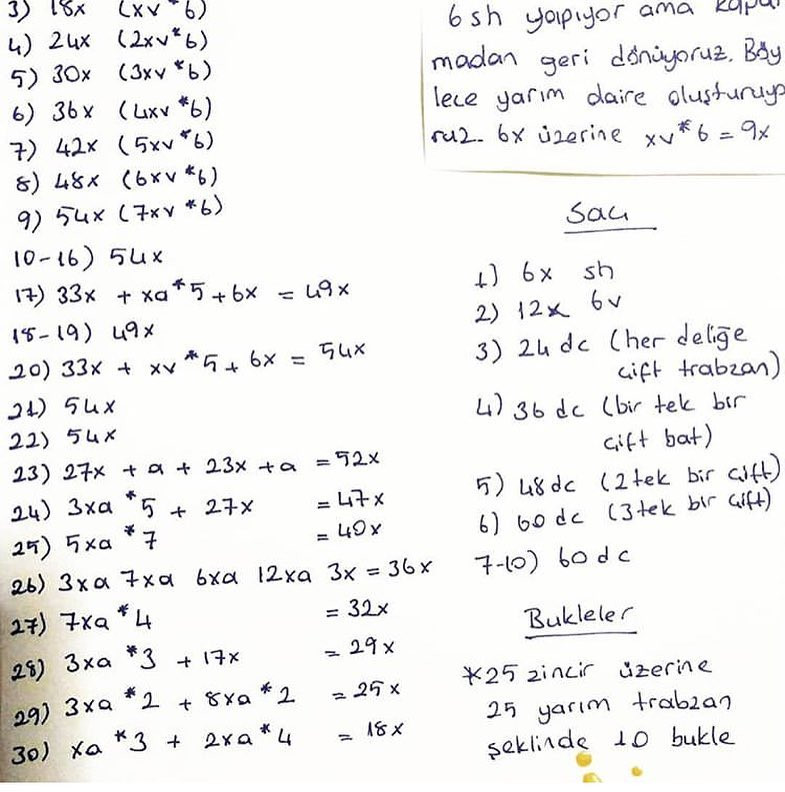 3) 18x (xv *6)
4) 24x (2xv*6)
5) 30x (3xv *6)
6) 36x (4xv *6)
7) 42x (5xv *6)
8) 48x (6xv *6)
9) 54x (7xv *6)
10-16) 54x
17) 33x + xa*5 + 6x = 49x
18-19) 49x
20) 33x + xv *5 + 6x = 54x
21) 54x
22) 54x
23) 27x + a + 23x + a = 52x
24) 3xa *5 + 27x = 47x
25) 5xa *7 = 40x
26) 3xa 7xa 6xa 12xa 3x = 36x
27) 7xa *4 = 32x
28) 3xa *3 + 17x = 29x
29) 3xa *2 + 8xa *2 = 25x
30) xa *3 + 2xa *4 = 18x
6 sh yapıyor ama kapat
madan geri dönüyoruz. Böy
lece yarım daire oluşturuyo
ruz. 6x üzerine xv*6 = 9x
Sacı
1) 6x sh
2) 12x 6v
3) 24 dc (her deliğe
çift trabzan)
4) 36 dc (bir tek bir
çift bat)
5) 48 dc (2 tek bir çift)
6) 60 dc (3 tek bir çift)
7-10) 60 dc
Bukleler
*25 zincir üzerine
25 yarım trabzan
şeklinde 10 bukle